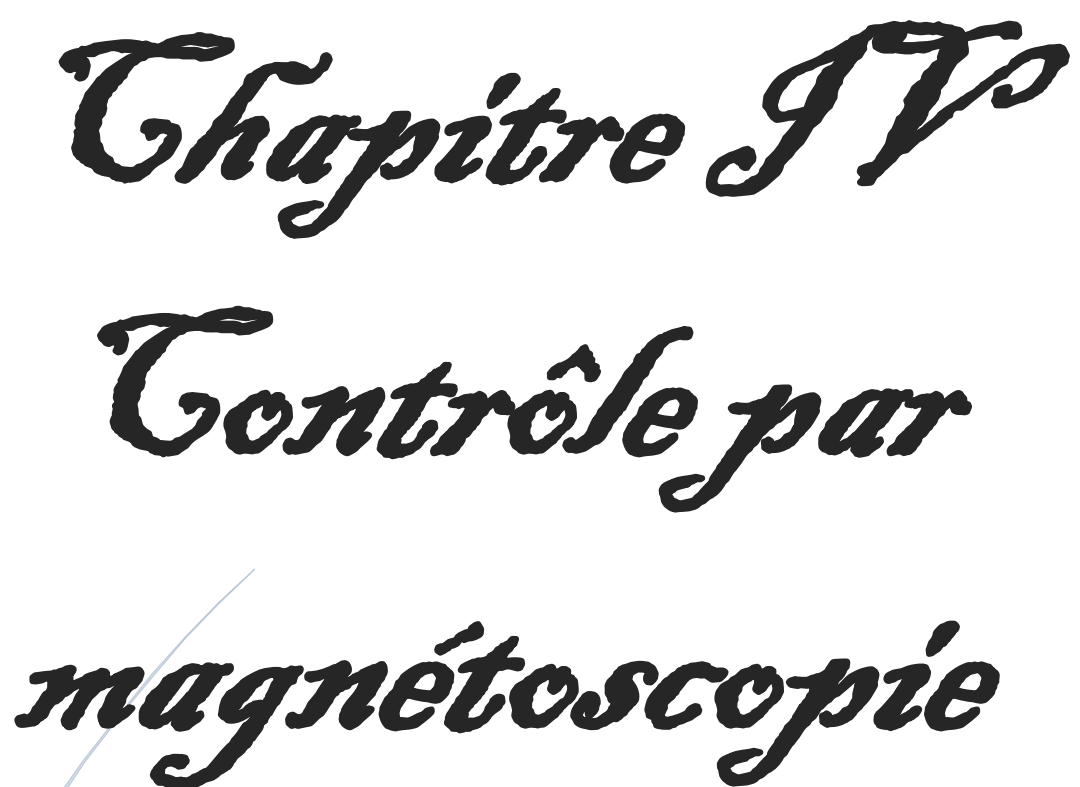 Chapitre IV
Contrôle par
magnétoscopie